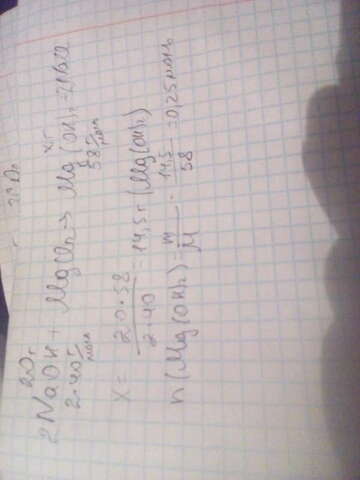 20г хг
2NaOH + MgCl₂ → Mg(OH)₂ + 2NaCl
2·40 г/моль 58 г/моль
x = 20·58 / 2·40 = 14,5 г (Mg(OH)₂)
n(Mg(OH)₂) = m/M = 14,5/58 = 0,25 моль